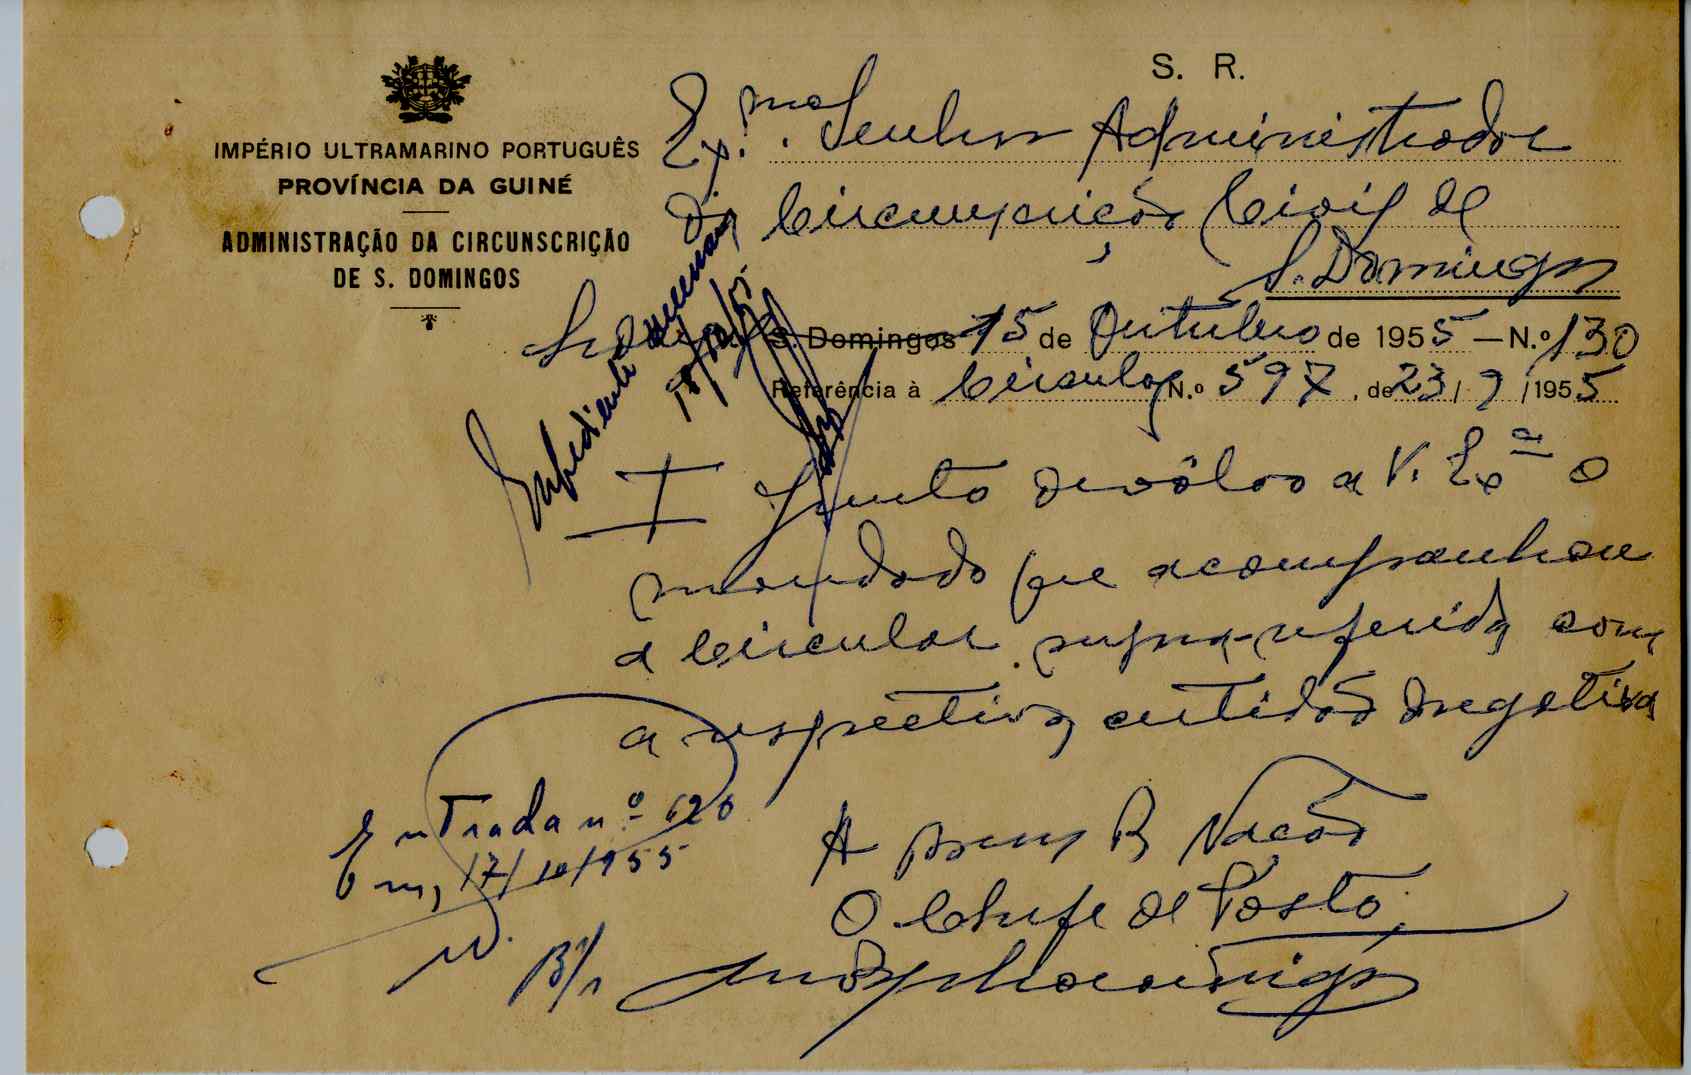 S. R.
IMPÉRIO ULTRAMARINO PORTUGUÊS
PROVÍNCIA DA GUINÉ
ADMINISTRAÇÃO DA CIRCUNSCRIÇÃO
DE S. DOMINGOS
Ex.mo. Senhor Administrador
da Circunscrição Civil de
S. Domingos
S. Domingos 15 de Outubro de 1955 — N.º 130
Referência à Circular N.º 597, de 23/9/1955
I Junto devolvo a V. Ex.ª o
mandado que acompanhou
a Circular supra-referida com
a respectiva certidão negativa
Entrada nº 620
Em, 17/10/955
A Bem da Nação
O Chefe de Pôsto,